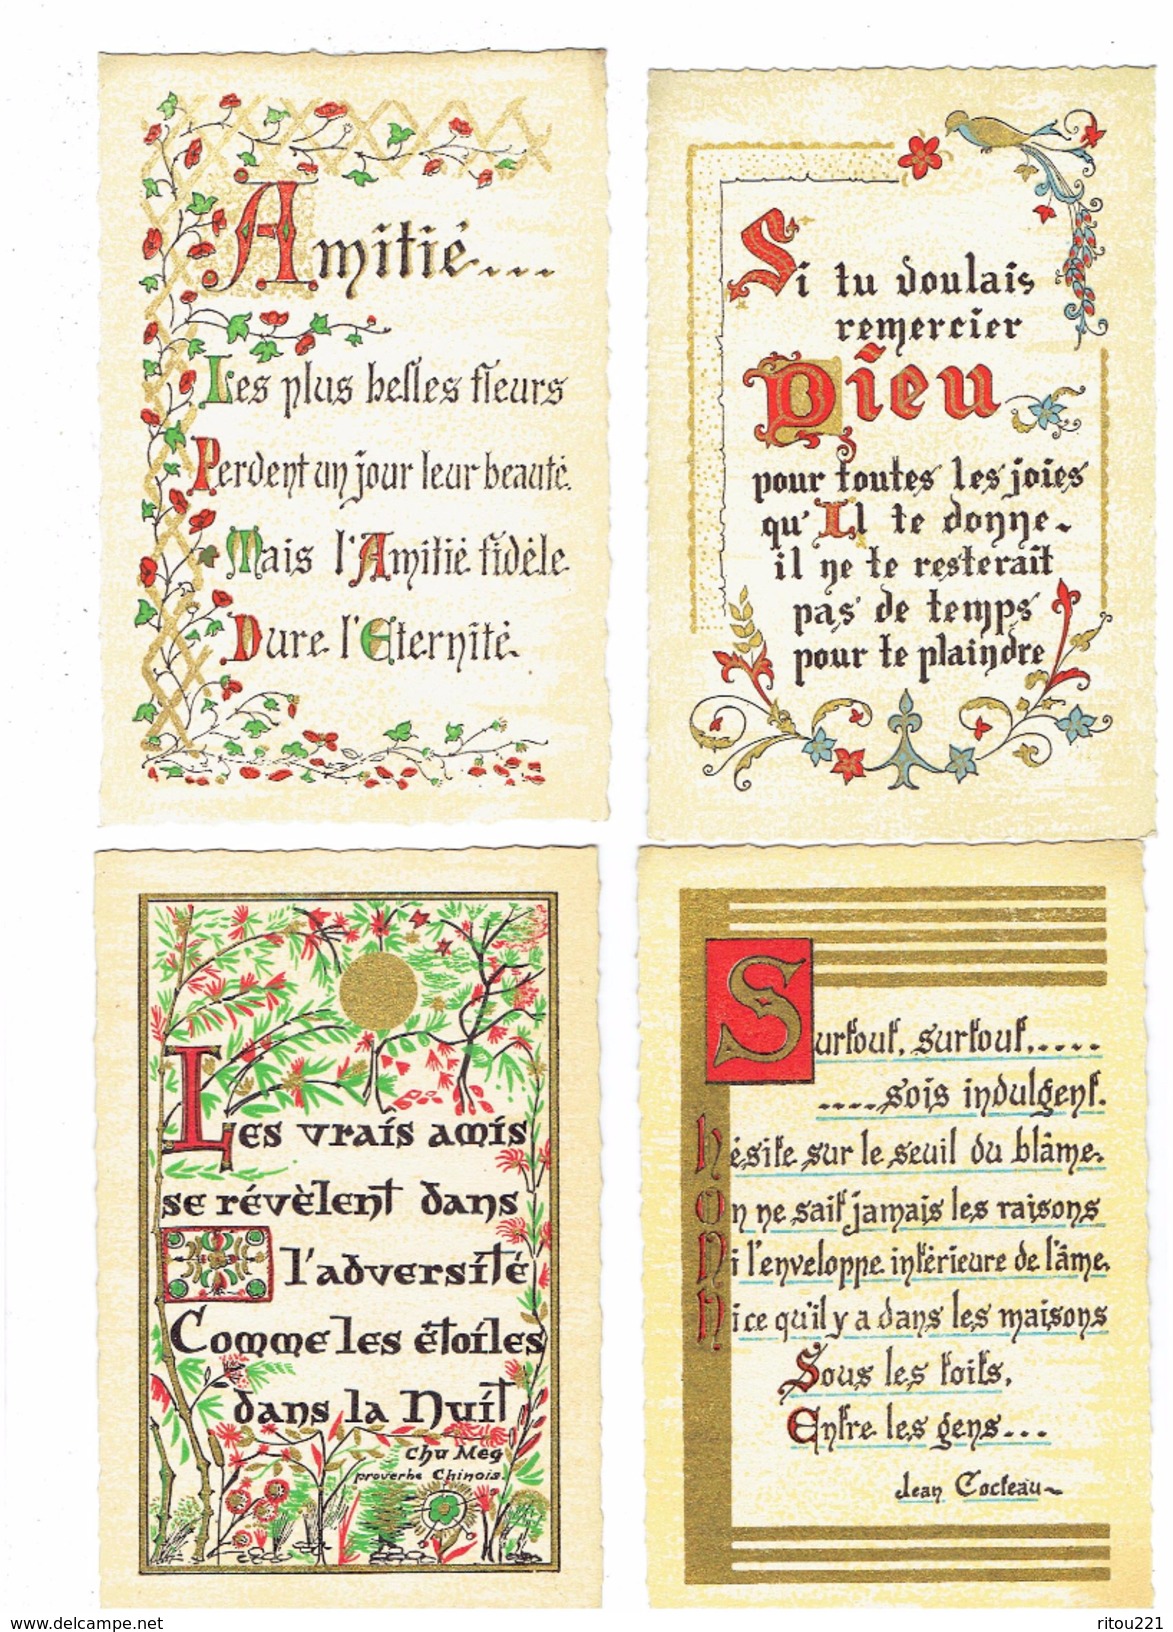 Amitié...
Les plus belles fleurs
Perdent un jour leur beauté.
Mais l'Amitié fidèle
Dure l'Eternité.
Si tu voulais
remercier
Dieu
pour toutes les joies
qu'Il te donne-
il ne te resterait
pas de temps
pour te plaindre
Les vrais amis
se révèlent dans
l'adversité
Comme les étoiles
dans la Nuit
Chu Meg
proverbe Chinois.
Surtout, surtout,....
....sois indulgent.
Hésite sur le seuil du blâme.
On ne sait jamais les raisons
Ni l'enveloppe intérieure de l'âme,
Ni ce qu'il y a dans les maisons
Sous les toits,
Entre les gens...
Jean Cocteau~
www.delcampe.net
ritou221